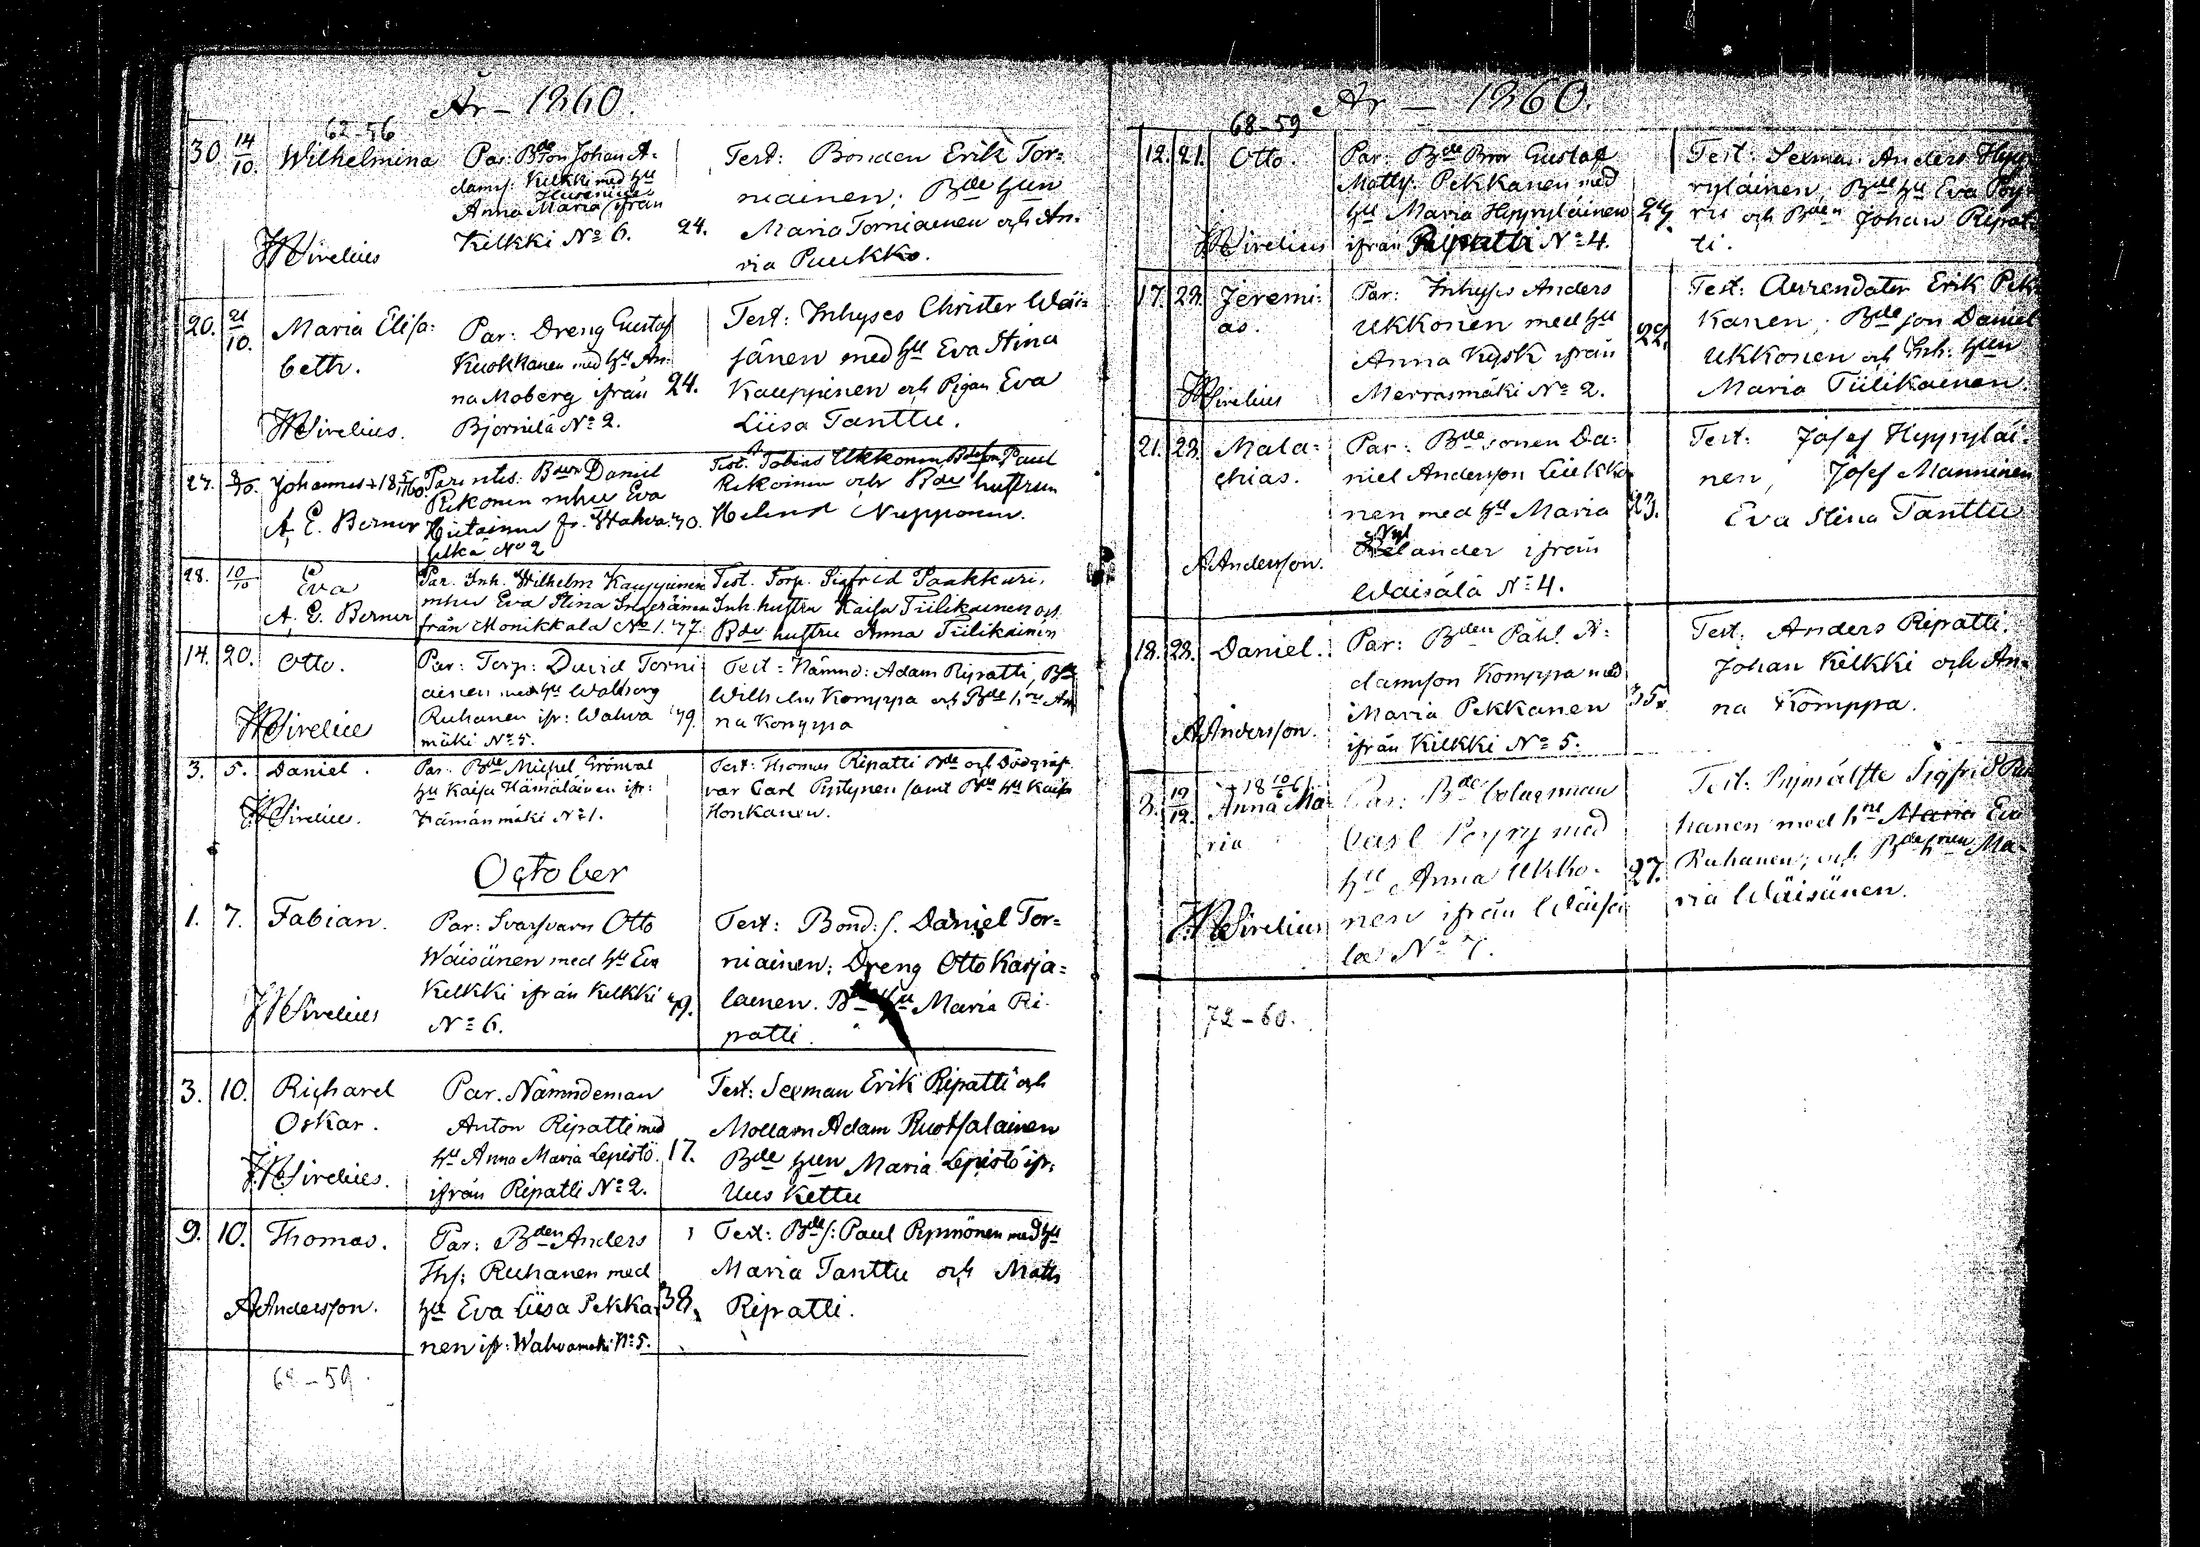 År - 1860.
62-56
30 14/10. Wilhelmina
Par: Bdeson Johan A-
damss: Kilkki med hu
Anna Maria Huvonius ifrån
Kilkki No 6.
24.
Test: Bonden Erik Tor-
niainen; Bde hun
Maria Torniainen och An-
ria Puukko.
Wirelius
20. 21/10. Maria Elisa-
beth.
Par: Dreng Gustaf
Kuokkanen med hu An-
na Moberg ifrån
Bjornilä No 2.
24.
Test: Inhyses Christer Wäi-
sänen med hu Eva Stina
Kauppinen och Pigan Eva
Liisa Tanttu.
Wirelius.
27. Johannes
A. E. Berner
Parentes: Daniel
Rekonen mhu Eva
Hietainen fr.
No 2
40.
Test. Tobias Ukkonen, Bdeson Paul
Rekoinen och Bde hustrun
Helena Nupponen.
28. 10/10 Eva
A. E. Berner
Par. Inh. Wilhelm Kauppinen
mhu Eva Stina Ingeräinen
från Monikkala No 1. 47.
Test. Torp. Sigfrid Paakkuri,
Inh. hustru Kaisa Tiilikainen och
Bde hustru Anna Tiilikainen
14. 20. Otto.
Par: Torp: David Torni
ainen med hu Walborg
Ruhanen ifr: Walva
mäki No 5.
Test: Nämnd: Adam Ripatti, Bde
Wilhelm Komppa och Bde hu An
na Komppa
Wirelius
3. 5. Daniel.
Par: Bde Michel Grönval
hu Kaisa Hämäläinen ifr:
Hämänmäki No 1.
Test: Thomas Ripatti Bde och Dödgräf
var Carl Pystynen samt Bde hu Kaisa
Honkanen.
Wirelius.
October
1. 7. Fabian.
Par: Svarfvarn Otto
Wäisänen med hu Eva
Kilkki ifrån Kilkki
No 6.
Test: Bond: s. Daniel Tor-
niainen; Dreng Otto Karja-
lainen. Bde hu Maria Ri-
patti.
Wirelius
3. 10. Richard
Oskar.
Par. Nämndeman
Anton Ripatti med
hu Anna Maria Lepistö.
ifrån Ripatti No 2.
17.
Test: Sexman Erik Ripatti och
Mollarn Adam Ruotsalainen
Bde hun Maria Lepistö ifr.
Uus Kettu
Wirelius.
9. 10. Thomas.
Par: Bden Anders
Ths: Ruhanen med
hu Eva Liisa Pekka-
nen ifr: Walvamäki No 5.
38.
Test: Bde s: Paul Rynnönen med hu
Maria Tanttu och Matts
Ripatti.
A Andersson.
68-59.
År - 1860.
68-59
12. 21. Otto.
Par: Bde Bror Gustaf
Matts: Pekkanen med
hu Maria Hyyryläinen
ifrån Ripatti No 4.
Test: Sexman Anders Hyy-
ryläinen, Bde hu Eva Pöy-
ris och Bden Johan Ripat-
ti.
Wirelius
17. 28. Jeremi-
as.
Par: Inhyses Anders
Ukkonen med hu
Anna Kysk ifrån
Merrasmäki No 2.
22.
Test: Arrendator Erik Pek-
kanen, Bde son Daniel
Ukkonen och Inh: hun
Maria Tiilikainen.
Wirelius
21. 28. Mala-
chias.
Par: Bde sonen Da-
niel Andersson Liukko
nen med hu Maria
Nylander ifrån
Wäisälä No 4.
23.
Test: Josef Hyyryläi-
nen, Josef Manninen
Eva Stina Tanttu
A Andersson.
18. 28. Daniel.
Par: Bden Påhl A-
damsson Komppa med
Maria Pekkanen
ifrån Kilkki No 5.
35.
Test: Anders Ripatti,
Johan Kilkki och An-
na Komppa.
A Andersson.
3. 19/12. Anna Ma-
ria
Par: Bde bolagsman
Carl Pöyry med
hu Anna Ukko-
nen ifrån Wäisä
lä No 7.
27.
Test: Rymälste Sigfrid Ru-
hanen med hne Maria Eva
Ruhanen, och Bdehun Ma-
ria Wäisänen.
Wirelius
72-60.